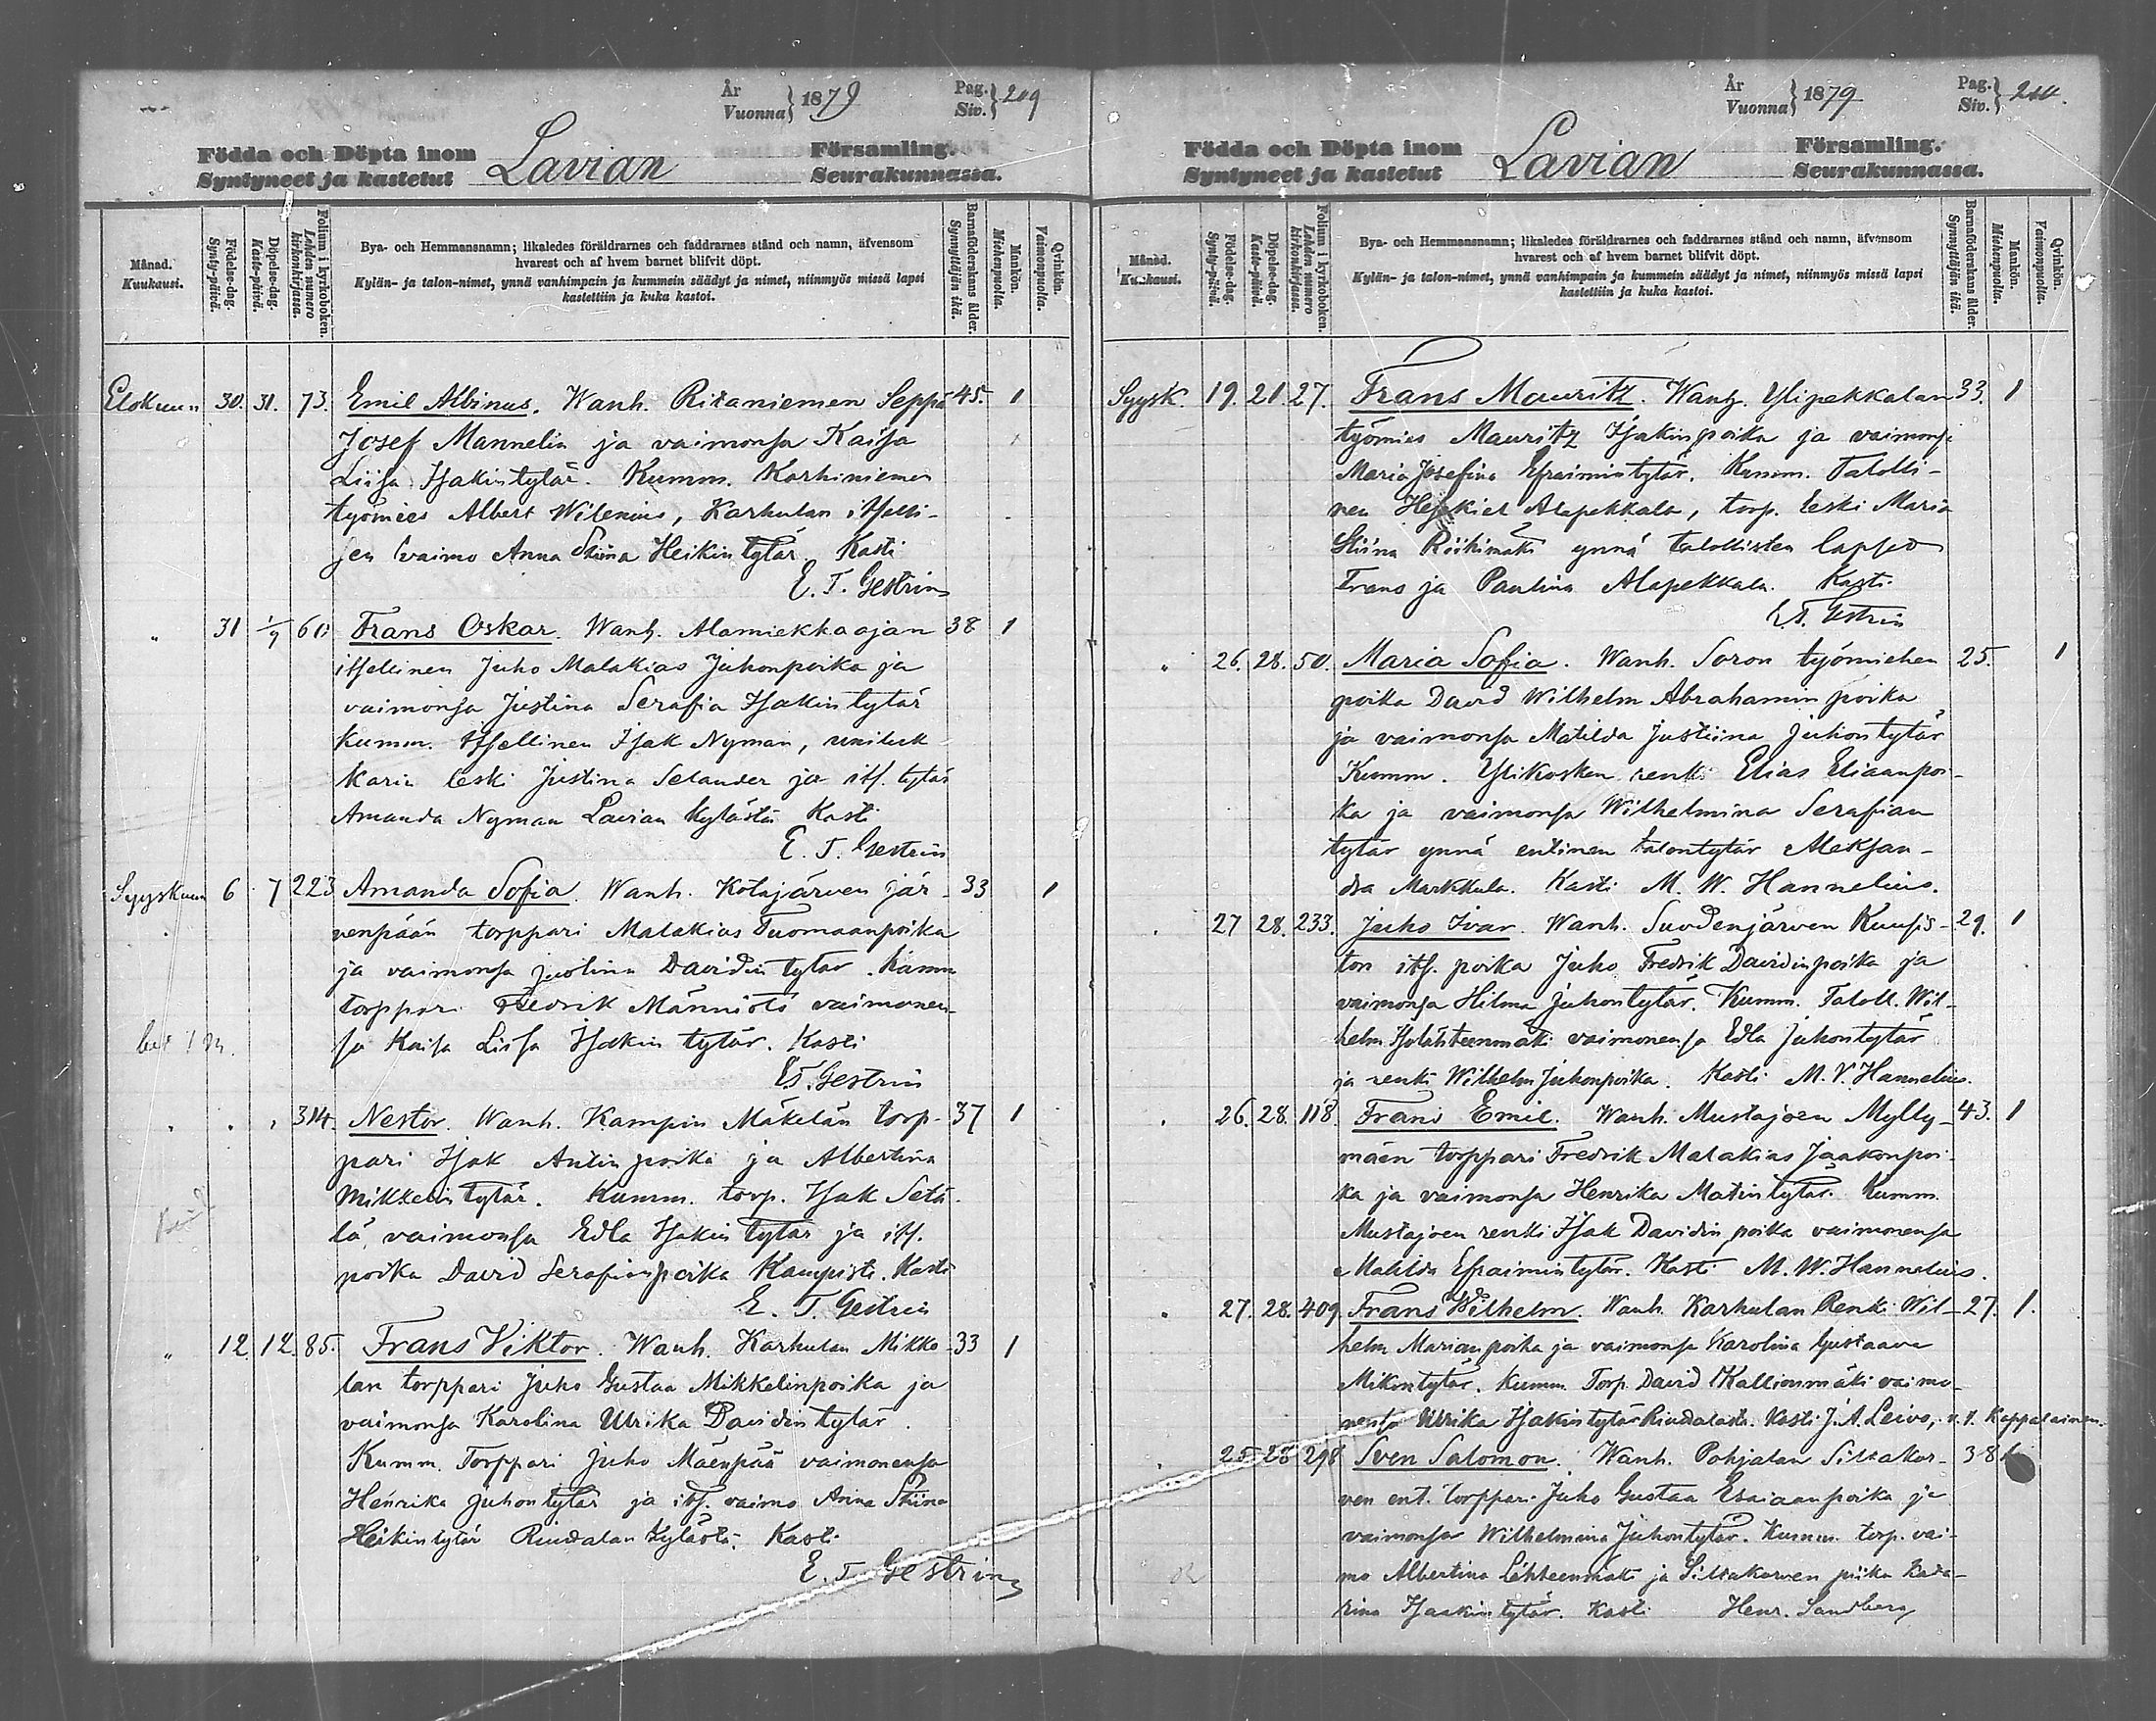 År
Vuonna } 1879
Pag.
Siv. } 209
Födda och Döpta inom
Syntyneet ja kastetut
Lavian
Församling.
Seurakunnassa.
Månad.
Kuukausi.
Födelse-dag.
Synty-päivä.
Döpelse-dag.
Kaste-päivä.
Folium i kyrkoboken.
Lehden numero kirkonkirjassa.
Bya- och Hemmansnamn; likaledes föräldrarnes och faddrarnes stånd och namn, äfvensom
hvarest och af hvem barnet blifvit döpt.
Kylän- ja talon-nimet, ynnä vanhimpain ja kummein säädyt ja nimet, niinmyös missä lapsi
kastettiin ja kuka kastoi.
Barnaföderskans ålder.
Synnyttäjän ikä.
Mankön.
Miehenpuolta.
Qvinkön.
Vaimonpuolta.
Elokuun 30. 31. 73. Emil Albinus. Wanh. Ritaniemen Seppä 45. 1
Josef Mannelin ja vaimonsa Kaisa
Liisa Isakintytär. Kumm. Karhiniemen
työmies Albert Wilenius, Karhulan itselli-
sen vaimo Anna Stiina Heikintytär. Kasti
E. T. Gestrin
" 31 1/9 60 Frans Oskar. Wanh. Alamiekkaojan 38 1
itsellinen Juho Malakias Juhonpoika ja
vaimonsa Justina Serafia Isakintytär
Kumm. Itsellinen Isak Nyman,
leski Justina Selander ja its. tytär
Amanda Nyman Lavian kylästä Kasti
E. T. Gestrin
Syyskuun 6 7 223 Amanda Sofia. Wanh. Kotajärven Jär- 33 1
venpään torppari Malakias Tuomaanpoika
ja vaimonsa Davidintytär. Kumm
torppari Fredrik Männistö vaimonen-
sa Kaisa Liisa Isakintytär. Kasti
E. T. Gestrin
" " " 314. Nestor. Wanh. Kampin Mäkelän torp- 37 1
pari Isak Antinpoika ja Albertina
Mikkelintytär. Kumm. torp. Isak Setä-
lä, vaimonsa Edla Isakintytär ja its.
poika David Serafianpoika Kampista. Kasti
E. T. Gestrin
" 12. 12. 85. Frans Viktor. Wanh. Karhulan Mikko- 33 1
lan torppari Juho Gustaa Mikkelinpoika ja
vaimonsa Karolina Ulrika Davidintytär.
Kumm. Torppari Juho Mäenpää vaimonensa
Henrika Juhontytär ja its. vaimo Anna Stiina
Heikintytär Riudalan kylästä. Kasti
E. T. Gestrin
År
Vuonna } 1879
Pag.
Siv. } 210.
Födda och Döpta inom
Syntyneet ja kastetut
Lavian
Församling.
Seurakunnassa.
Månad.
Kuukausi.
Födelse-dag.
Synty-päivä.
Döpelse-dag.
Kaste-päivä.
Folium i kyrkoboken.
Lehden numero kirkonkirjassa.
Bya- och Hemmansnamn; likaledes föräldrarnes och faddrarnes stånd och namn, äfvensom
hvarest och af hvem barnet blifvit döpt.
Kylän- ja talon-nimet, ynnä vanhimpain ja kummein säädyt ja nimet, niinmyös missä lapsi
kastettiin ja kuka kastoi.
Barnaföderskans ålder.
Synnyttäjän ikä.
Mankön.
Miehenpuolta.
Qvinkön.
Vaimonpuolta.
Syysk. 19. 21. 27. Frans Mauritz. Wanh. Ylipekkalan 33. 1
työmies Mauritz Isakinpoika ja vaimonsa
Maria Josefina Efraimintytär. Kumm. Talolli-
nen Hesekiel Alapekkala, torp. leski Maria
Stiina Riikimäki ynnä talollisten lapset
Frans ja Paulina Alapekkala. Kasti
E. T. Gestrin
" 26. 28. 50. Maria Sofia. Wanh. Soron työmiehen 25. 1
poika David Wilhelm Abrahamin poika
ja vaimonsa Matilda Justiina Juhontytär
Kumm. Ylikosken renki Elias Eliaanpoi-
ka ja vaimonsa Wilhelmina Serafian
tytär ynnä entinen talontytär Aleksan-
dra Markkula. Kasti M. W. Hannelius.
" 27 28. 233. Juho Ivar. Wanh. Suodenjärven Kuusis- 29. 1
ton its. poika Juho Fredrik Davidinpoika ja
vaimonsa Hilma Juhontytär. Kumm. Taloll. Wil-
helm vaimonensa Edla Juhontytär
ja renki Wilhelm Juhonpoika. Kasti M. V. Hannelius.
" 26. 28. 118. Frans Emil. Wanh. Mustajoen Mylly- 43. 1
mäen torppari Fredrik Malakias Jaakonpoi-
ka ja vaimonsa Henrika Matintytär. Kumm.
Mustajoen renki Isak Davidin poika vaimonensa
Matilda Efraimintytär. Kasti M. W. Hannelius.
" 27. 28. 409 Frans Wilhelm. Wanh. Karhulan Renki Wil- 27. 1.
helm Marianpoika ja vaimonsa Karolina Gustaava
Mikontytär. Kumm. Torp. David Kallionmäki vaimo-
nensa Ulrika Isakintytär Riudalasta. Kasti J. A. Leivo, v. t. Kappalainen.
" 25 28 298 Sven Salomon. Wanh. Pohjalan Siltakor- 38 1
ven ent. torppari Juho Gustaa Esaiaanpoika ja
vaimonsa Wilhelmina Juhontytär. Kumm. torp. vai-
mo Albertina Lähteenmäki ja Siltakorven piika Kata-
rina Isaakintytär. Kasti Henr. Sandberg